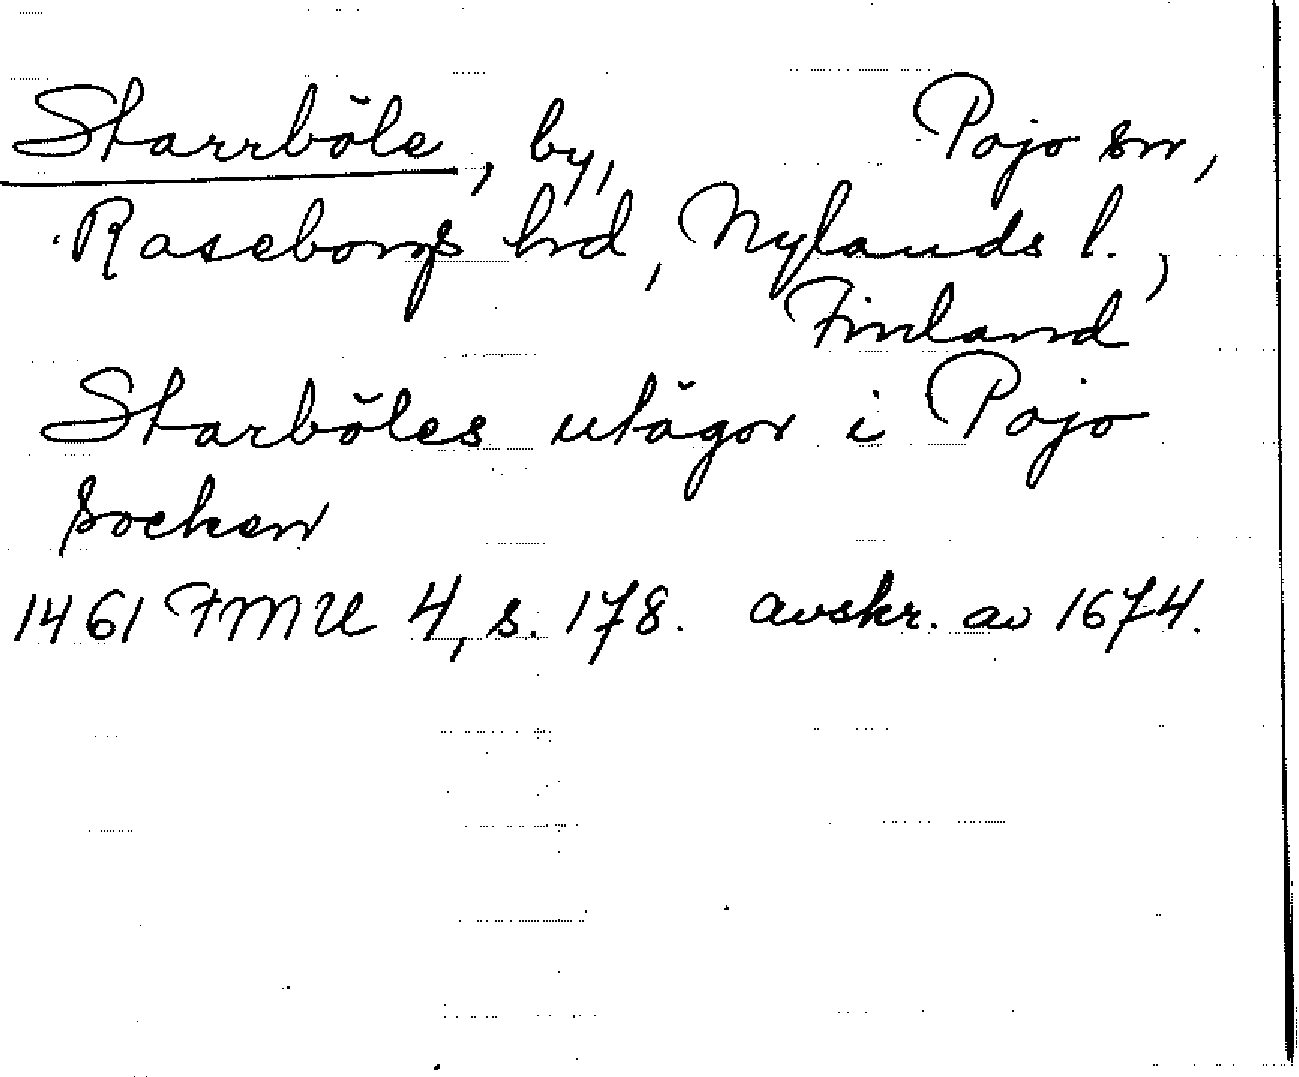 Starrböle, by, Pojo sn,
Raseborgs hrd, Nylands l.,
Finland
Starböles utägor i Pojo
socken
1461 FMU 4, s. 178. avskr. av 1674.